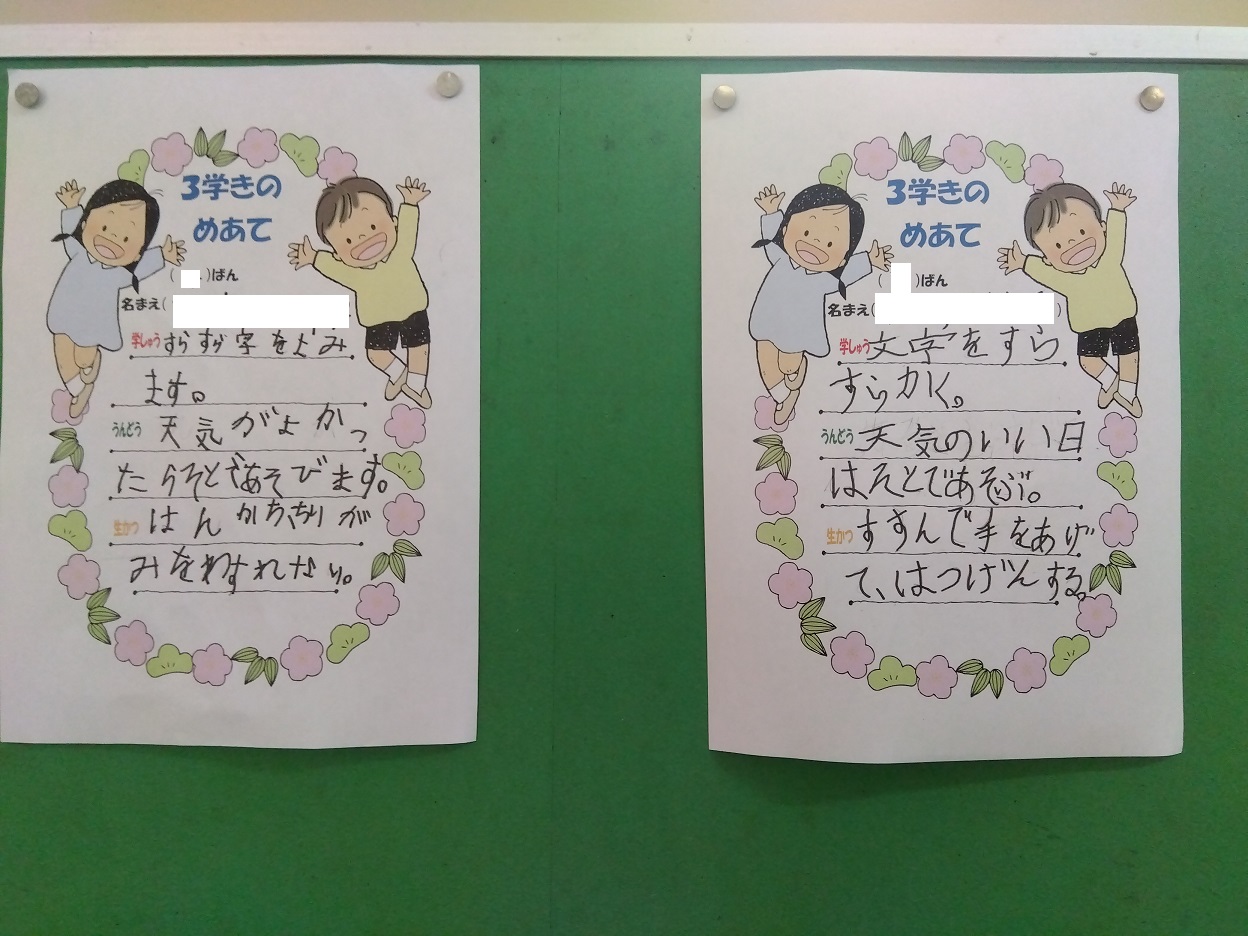 3学きの
めあて
( )ばん
名まえ(
学しゅう すらすら字をよみ
ます。
うんどう 天気がよかっ
たらそとであそびます。
生かつ はんかち、ちりが
みをわすれない。
3学きの
めあて
( )ばん
名まえ( )
学しゅう 文字をすら
すらかく。
うんどう 天気のいい日
はそとであそぶ。
生かつ すすんで手をあげ
て、はつげんする。